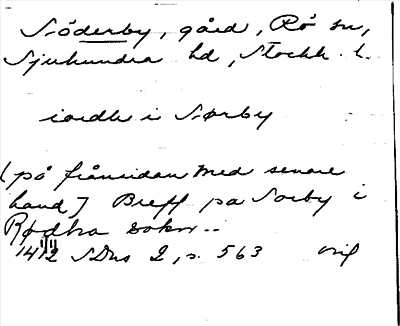 Söderby, gård, Rö sn,
Sjuhundra hd, Stockh. l.
iordh i Sørby
(på frånsidan med senare
hand) Breff pa Sorby i
Rødha sokn..
1412 SDns 2, s. 563 orig